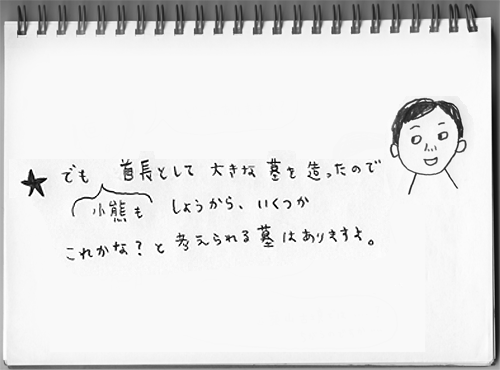 ★でも 首長として大きな墓を造ったので
小熊も しょうから、いくつか
これかな？と考えられる墓はありますよ。